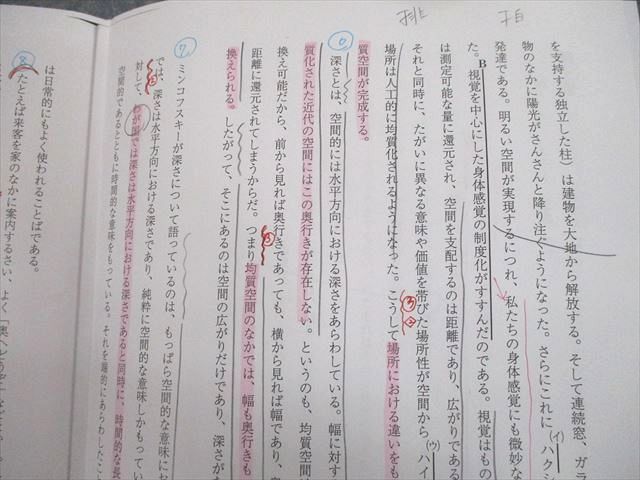 拍
排
を支持する独立した柱）は建物を大地から解放する。そして連続窓、ガラ
物のなかに陽光がさんさんと降り注ぐようになった。さらにこれに(イ)ハクシ
発達である。明るい空間が実現するにつれ、私たちの身体感覚にも微妙な
た。B視覚を中心にした身体感覚の制度化がすすんだのである。視覚はもの
は測定可能な量に還元され、空間を支配するのは距離であり、広がりである
それと同時に、たがいに異なる意味や価値を帯びた場所性が空間から(ウ)ハイ
場所は人工的に均質化されるようになった。こうして場所における違いをも
質空間が完成する。
⑥ 深さとは、空間的には水平方向における深さをあらわしている。幅に対す
質化された近代の空間にはこの奥行きが存在しない。というのも、均質空間
換え可能だから、前から見れば奥行きであっても、横から見れば幅であり、
距離に還元されてしまうからだ。つまり均質空間のなかでは、幅も奥行きも
換えられる。したがって、そこにあるのは空間の広がりだけであり、深さが
⑦ ミンコフスキーが深さについて語っているのは、もっぱら空間的な意味にお
では、深さは水平方向における深さであり、純粋に空間的な意味しかもってい
対して、わが国では深さは水平方向における深さであると同時に、時間的な長
空間的であるとともに時間的な意味をもっている。それを端的にあらわしたこ
は日常的にもよく使われることばである。
⑧ たとえば来客を家のなかに案内するさい、よく「奥へどうぞ